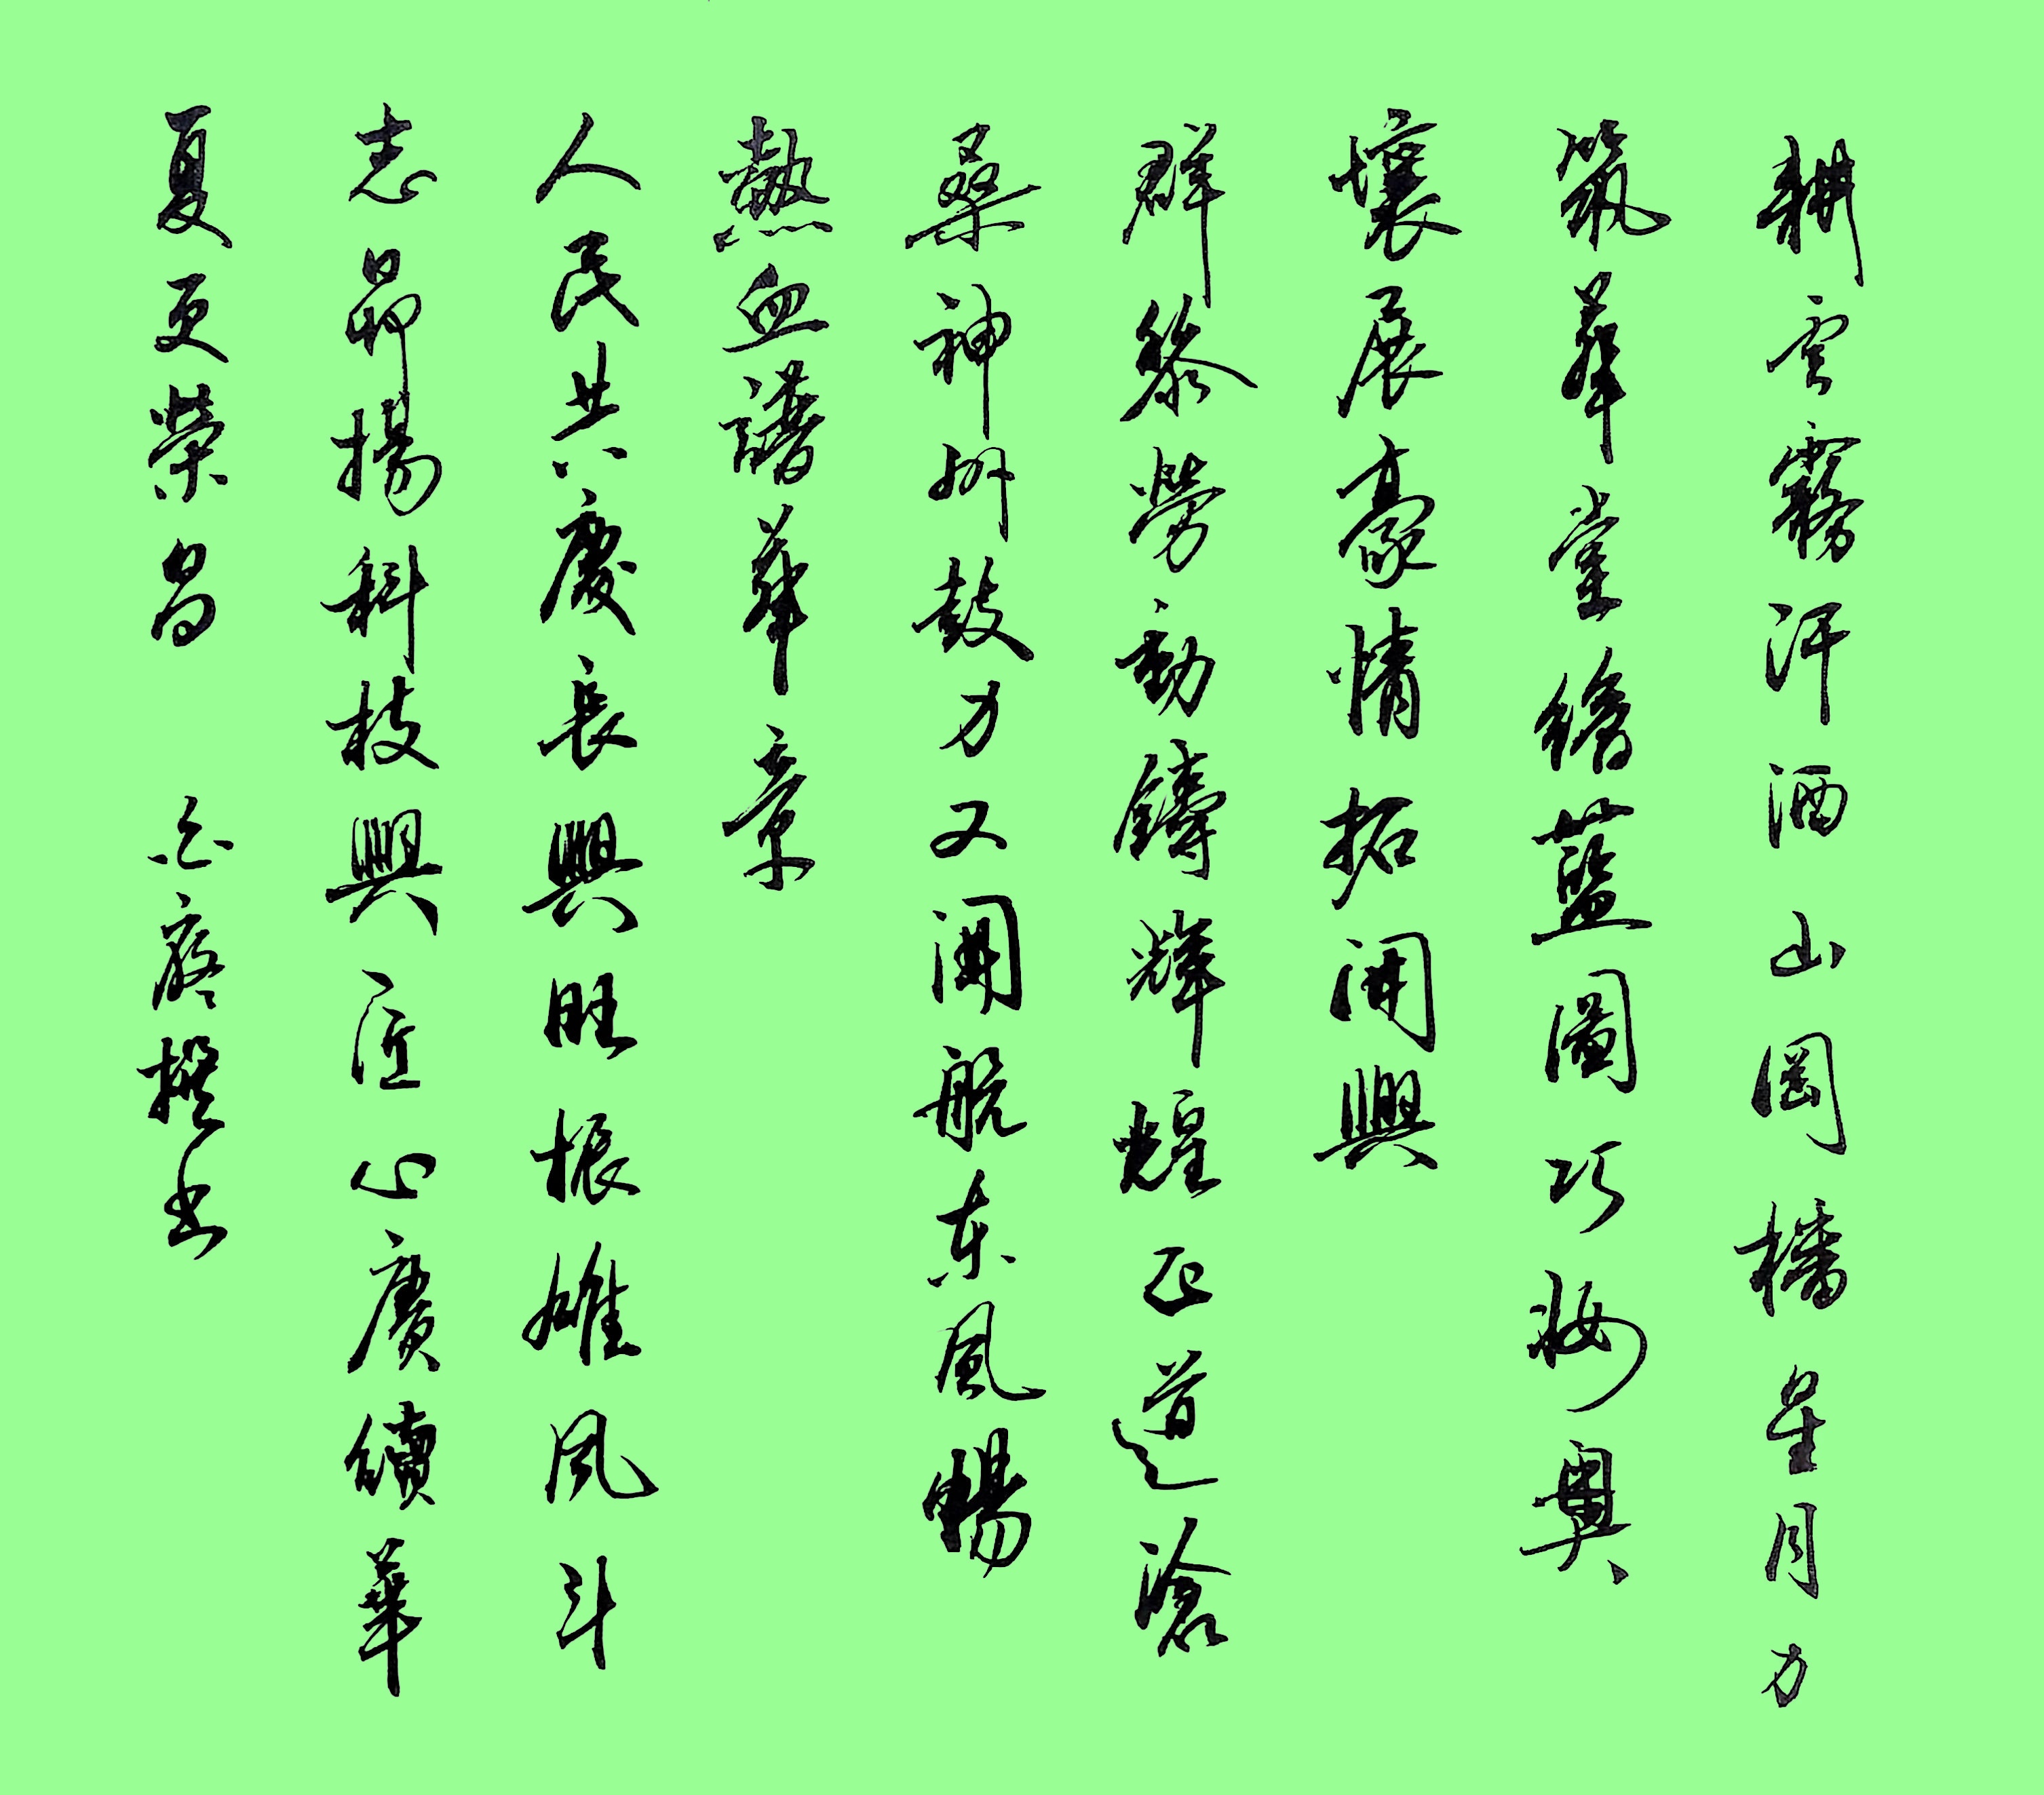 耕云霧汗洒山岡播星月力
筑華堂繪藍圖巧妙奧
壤展豪情拓開興
群黎勞動鑄輝煌正道滄
桑神州鼓力又開航东風暢
熱血譜華章
人民共慶長興旺振雄风斗
志昂揚科技興匠心賡續華
夏更榮昌 撰书